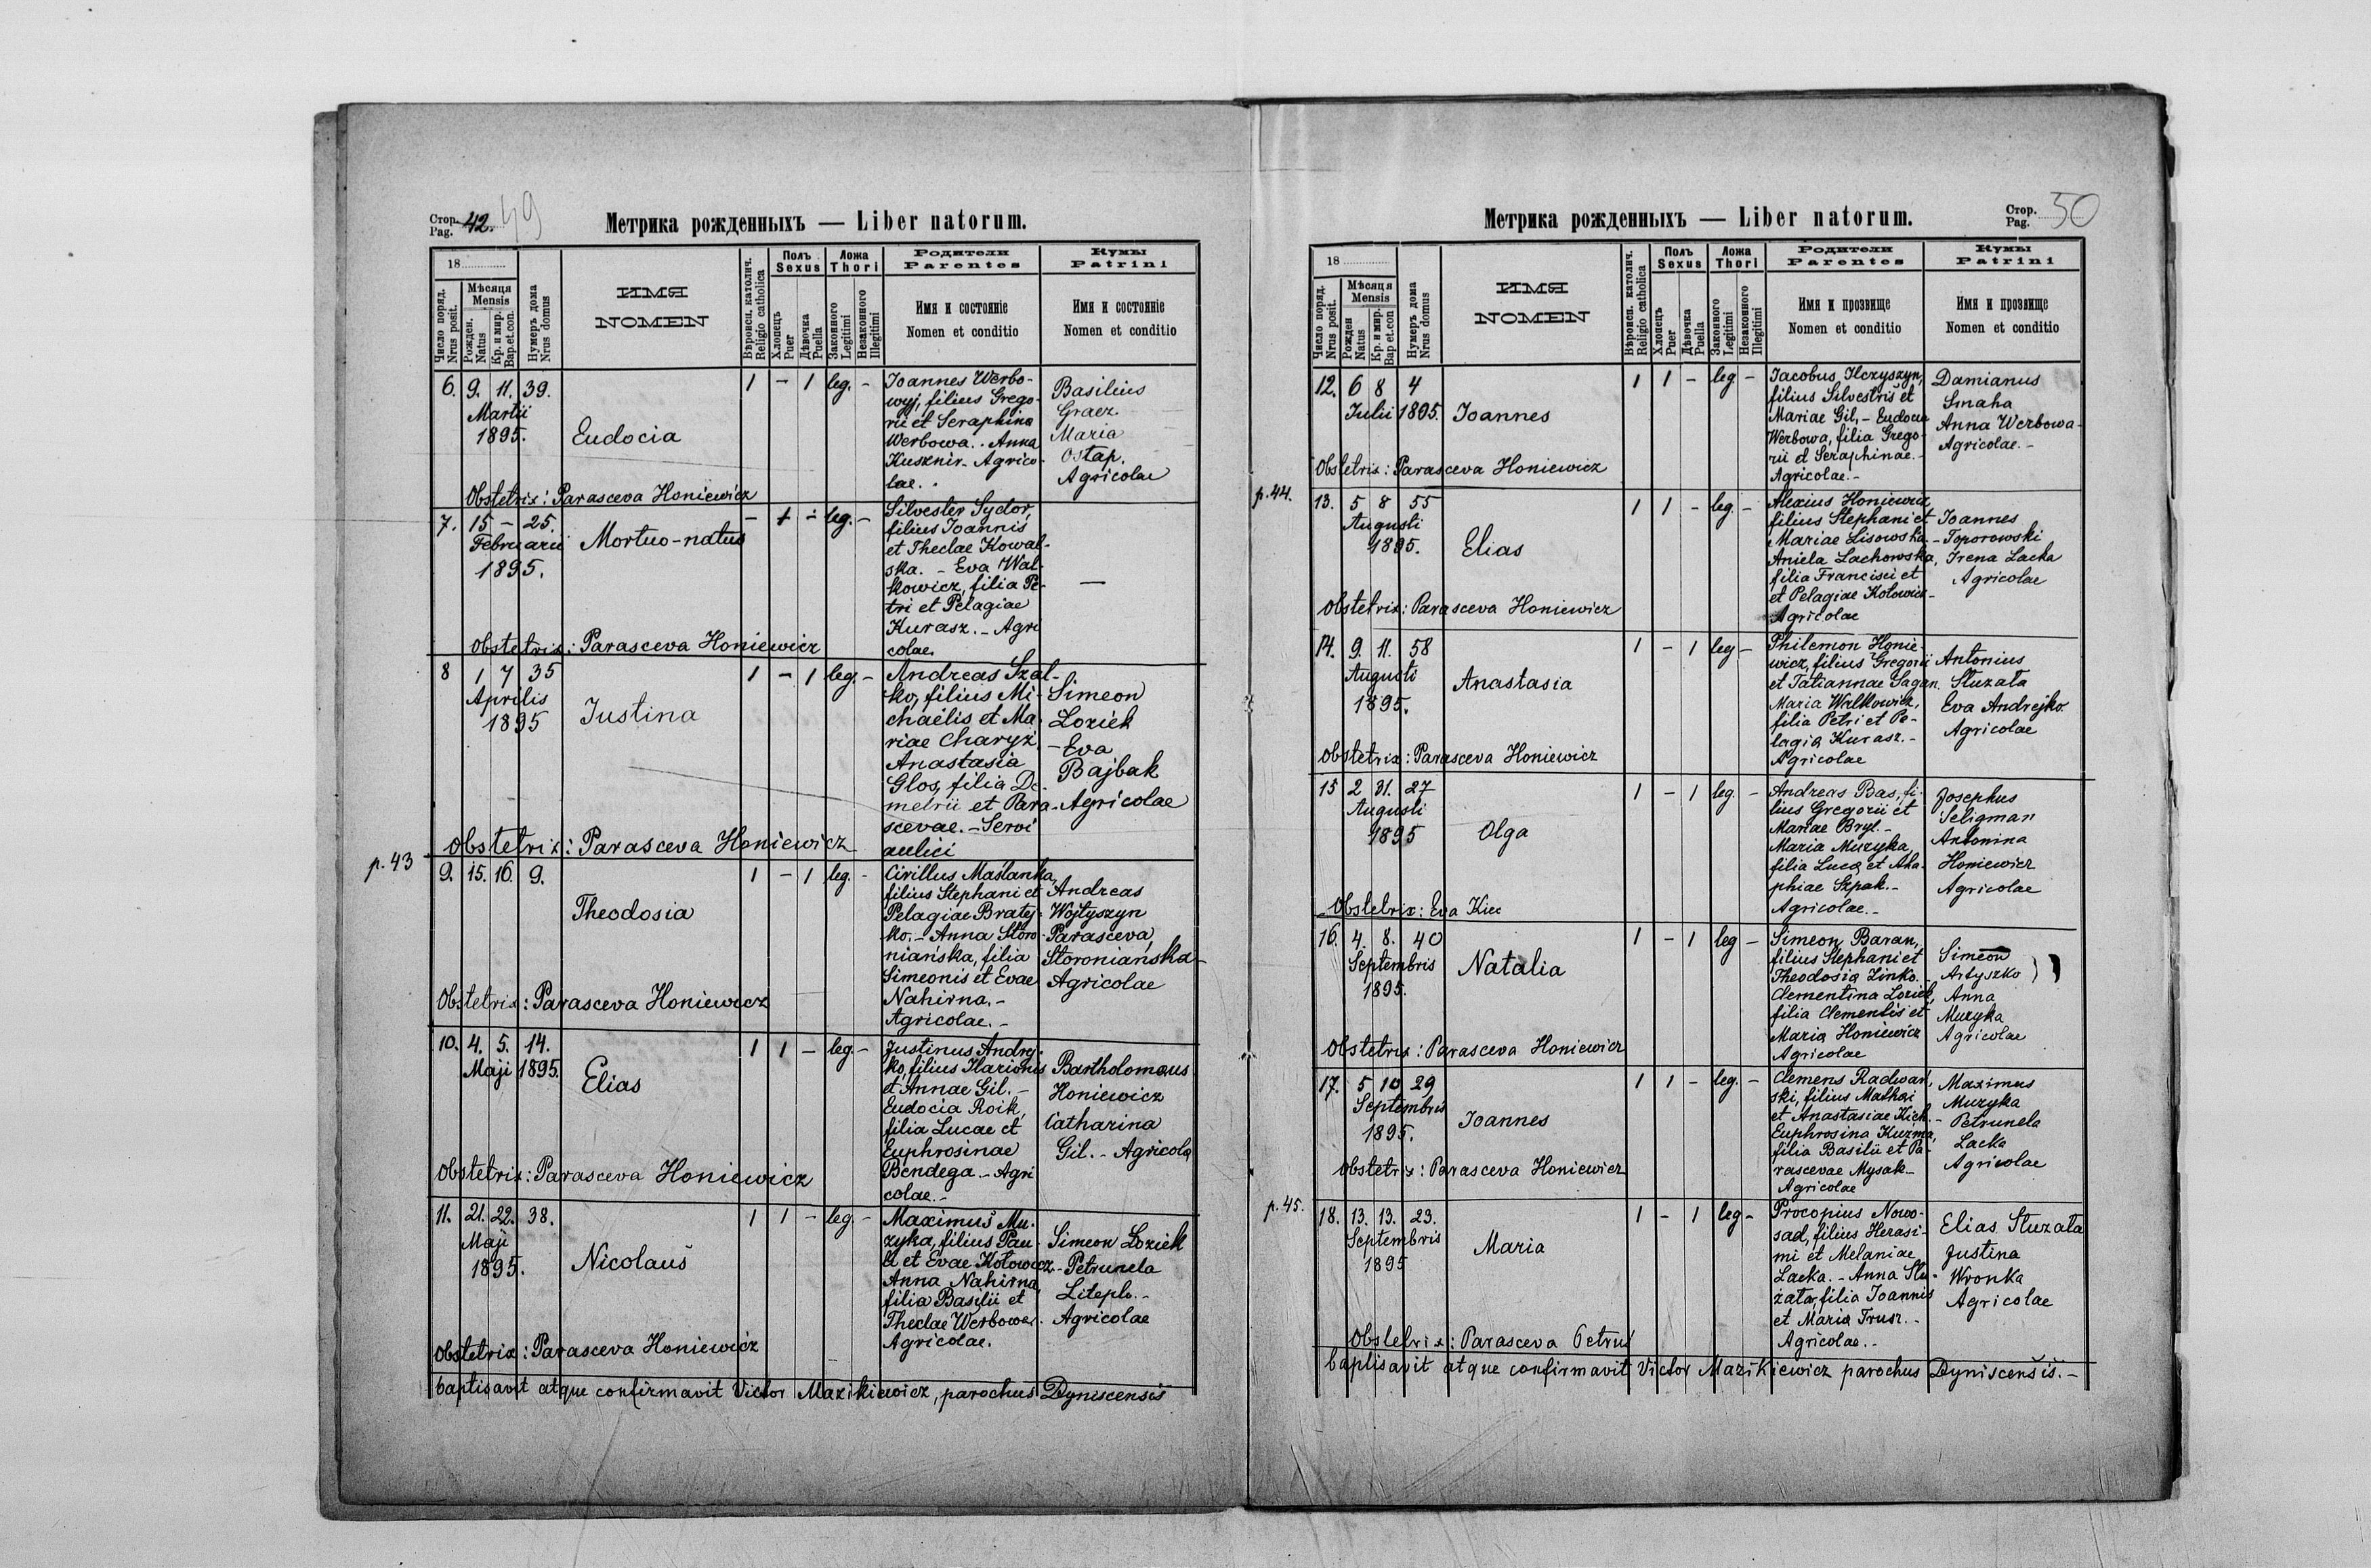 Стор.
Pag. 42. 49
Метрика рожденныхъ — Liber natorum.
18
Число поряд.
Nrus posit.
Мѣсяця
Mensis
Рожден.
Natus
Кр. и мир.
Bap. et. con.
Нумеръ дома
Nrus domus
ИМЯ
NOMEN
Вѣроисп. католич.
Religio catholica
Полъ
Sexus
Хлопецъ
Puer
Дѣвочка
Puella
Ложа
Thori
Законного
Legitimi
Незаконного
Illegitimi
Родители
Parentes
Имя и состоянiе
Nomen et conditio
Кумы
Patrini
Имя и состоянiе
Nomen et conditio
6. 9. 11. 39.
Martii
1895.
Eudocia
1 - 1 leg. -
Joannes Werbo-
wyj, filius Grego-
rii et Seraphina
Werbowa. . Anna
Kusznir - Agrico-
lae. .
Basilius
Graez
Maria
Ostap.
Agricolae
Obstetrix: Parasceva Honiewicz
7. 15 - 25.
Februarii
1895.
Mortuo-natus
- 1 - leg. -
Silvester Sydor,
filius Joannis
et Theclae Kowal-
ska. - Eva Wal-
kowicz, filia Pe-
tri et Pelagiae
Kurasz. - Agri
colae.
—
Obstetrix: Parasceva Honiewicz
8 1 7 35
Aprilis
1895
Justina
1 - 1 leg. -
Andreas Szal-
ko, filius Mi-
chaëlis et Ma-
riae Charyż,
Anastasia
Glos, filia De-
metrii et Para-
scevae. - Servi
aulici
Simeon
Loziek
- Eva
Bajbak
Agricolae
Obstetrix: Parasceva Honiewicz
p. 43
9. 15. 16. 9.
Theodosia
1 - 1 leg. -
Cirillus Maślanka,
filius Stephani et
Pelagiae Bratej-
ko. - Anna Storo-
niańska, filia
Simeonis et Evae
Nahirna. -
Agricolae. -
Andreas
Wojtyszyn
Parasceva
Storoniańska -
Agricolae
Obstetrix: Parasceva Honiewicz
10. 4. 5. 14.
Maji 1895.
Elias
1 1 - leg. -
Justinus Andrej-
ko, filius Ilarionis
et Annae Gil. -
Eudocia Roik,
filia Lucae et
Euphrosinae
Bendega. - Agri
colae. -
Bartholomaeus
Honiewicz
Catharina
Gil. - Agricolae
Obstetrix: Parasceva Honiewicz
11. 21. 22. 38.
Maji
1895.
Nicolaus
1 1 - leg. -
Maximus Mu-
zyka, filius Pau-
li et Evae Kotowicz -
Anna Nahirna,
filia Basilii et
Theclae Werbowa.
Agricolae.
Simeon Loziek
Petrunela
Liteplo. -
Agricolae
Obstetrix: Parasceva Honiewicz
baptisavit atque confirmavit Victor Mazikiewicz, parochus Dyniscensis
Стор.
Pag. 50
Метрика рожденныхъ — Liber natorum.
18
Число поряд.
Nrus posit.
Мѣсяця
Mensis
Рожден
Natus
Кр. и мир.
Bap et.con
Нумеръ дома
Nrus domus
ИМЯ
NOMEN
Вѣроисп. католич.
Religio catholica
Полъ
Sexus
Хлопецъ
Puer
Дѣвочка
Puella
Ложа
Thori
Законного
Legitimi
Незаконного
Illegitimi
Родители
Parentes
Имя и прозвище
Nomen et conditio
Кумы
Patrini
Имя и прозвище
Nomen et conditio
12. 6 8 4
Julii 1895.
Joannes
1 1 - leg -
Jacobus Ilczyszyn,
filius Silvestris et
Mariae Gil, - Eudocia
Werbowa, filia Grego-
rii et Seraphinae. -
Agricolae. -
Damianus
Smaha
Anna Werbowa -
Agricolae. -
Obstetrix: Parasceva Honiewicz
p. 44.
13. 5 8 55
Augusti
1895.
Elias
1 1 - leg -
Alexius Honiewicz,
filius Stephani et
Mariae Lisowska. -
Aniela Lachowska,
filia Francisci et
et Pelagiae Kotowicz -
Agricolae
Joannes
Toporowski
Irena Lacka
Agricolae
Obstetrix: Parasceva Honiewicz
14. 9. 11. 58
Augusti
1895.
Anastasia
1 - 1 leg -
Philemon Honie-
wicz, filius Gregorii
et Tatiannae Sagan.
Maria Walkowicz,
filia Petri et Pe-
lagia Kurasz. -
Agricolae
Antonius
Sluzała
Eva Andrejko
Agricolae
Obstetrix: Parasceva Honiewicz
15 2 31. 27
Augusti
1895
Olga
1 - 1 leg. -
Andreas Bas, fi-
lius Gregorii et
Mariae Bryl. -
Maria Muzyka,
filia Luca et Aha-
phiae Szpak. -
Agricolae. -
Josephus
Seligman
Antonina
Honiewicz
Agricolae
Obstetrix: Eva Kiec
16. 4. 8. 40
Septembris
1895.
Natalia
1 - 1 leg -
Simeon Baran,
filius Stephani et
Theodosia Zinko. -
Clementina Loziek,
filia Clementis et
Maria Honiewicz
Agricolae
Simeon
Artyszko
Anna
Muzyka
Agricolae
Obstetrix: Parasceva Honiewicz
17. 5 10 29
Septembris
1895.
Joannes
1 1 - leg. -
Clemens Radwań-
ski, filius Mathei
et Anastasiae Kich. -
Euphrosina Kuzma,
filia Basilii et Pa-
rascevae Mysak -
Agricolae
Maximus
Muzyka
Petrunela
Lacka
Agricolae
Obstetrix: Parasceva Honiewicz
p. 45.
18. 13. 13. 23.
Septembris
1895
Maria
1 - 1 leg -
Procopius Nowo-
sad, filius Herasi-
mi et Melaniae
Lacka. - Anna Słu-
zała, filia Joannis
et Maria Trusz. -
Agricolae. -
Elias Słuzała
Justina
Wronka
Agricolae
Obstetrix: Parasceva Petruś
baptisavit atque confirmavit Victor Mazikiewicz parochus Dyniscensis. -